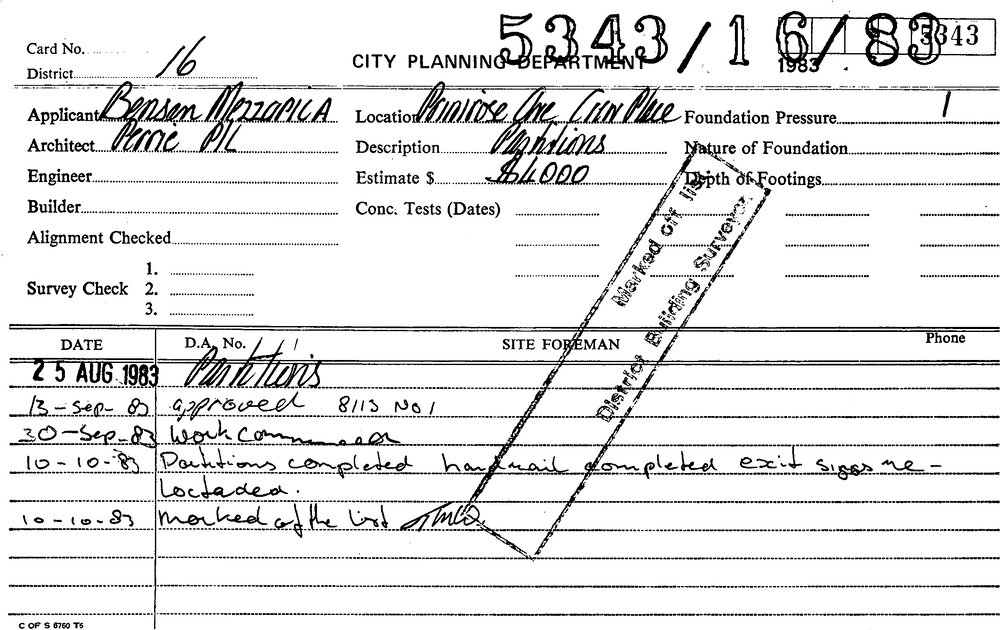 5343/16/83
5343
1983
Card No.
District 16
CITY PLANNING DEPARTMENT
Applicant Benson Mezzapica
Location Primrose One Curr Place
Foundation Pressure 1
Architect Perrie P/L
Description Partitions
Nature of Foundation
Engineer
Estimate $ $4000
Depth of Footings
Builder
Conc. Tests (Dates)
Alignment Checked
Survey Check
1.
2.
3.
Marked off
District Building Surveyor
DATE D.A. No. SITE FOREMAN Phone
25 AUG 1983 Partitions
13-Sep-83 approved 8113 No1
30-Sep-83 Work Commenced
10-10-83 Partitions completed handrail completed exit signs re-
loctaded.
10-10-83 Marked of the list
C OF S 6760 T6